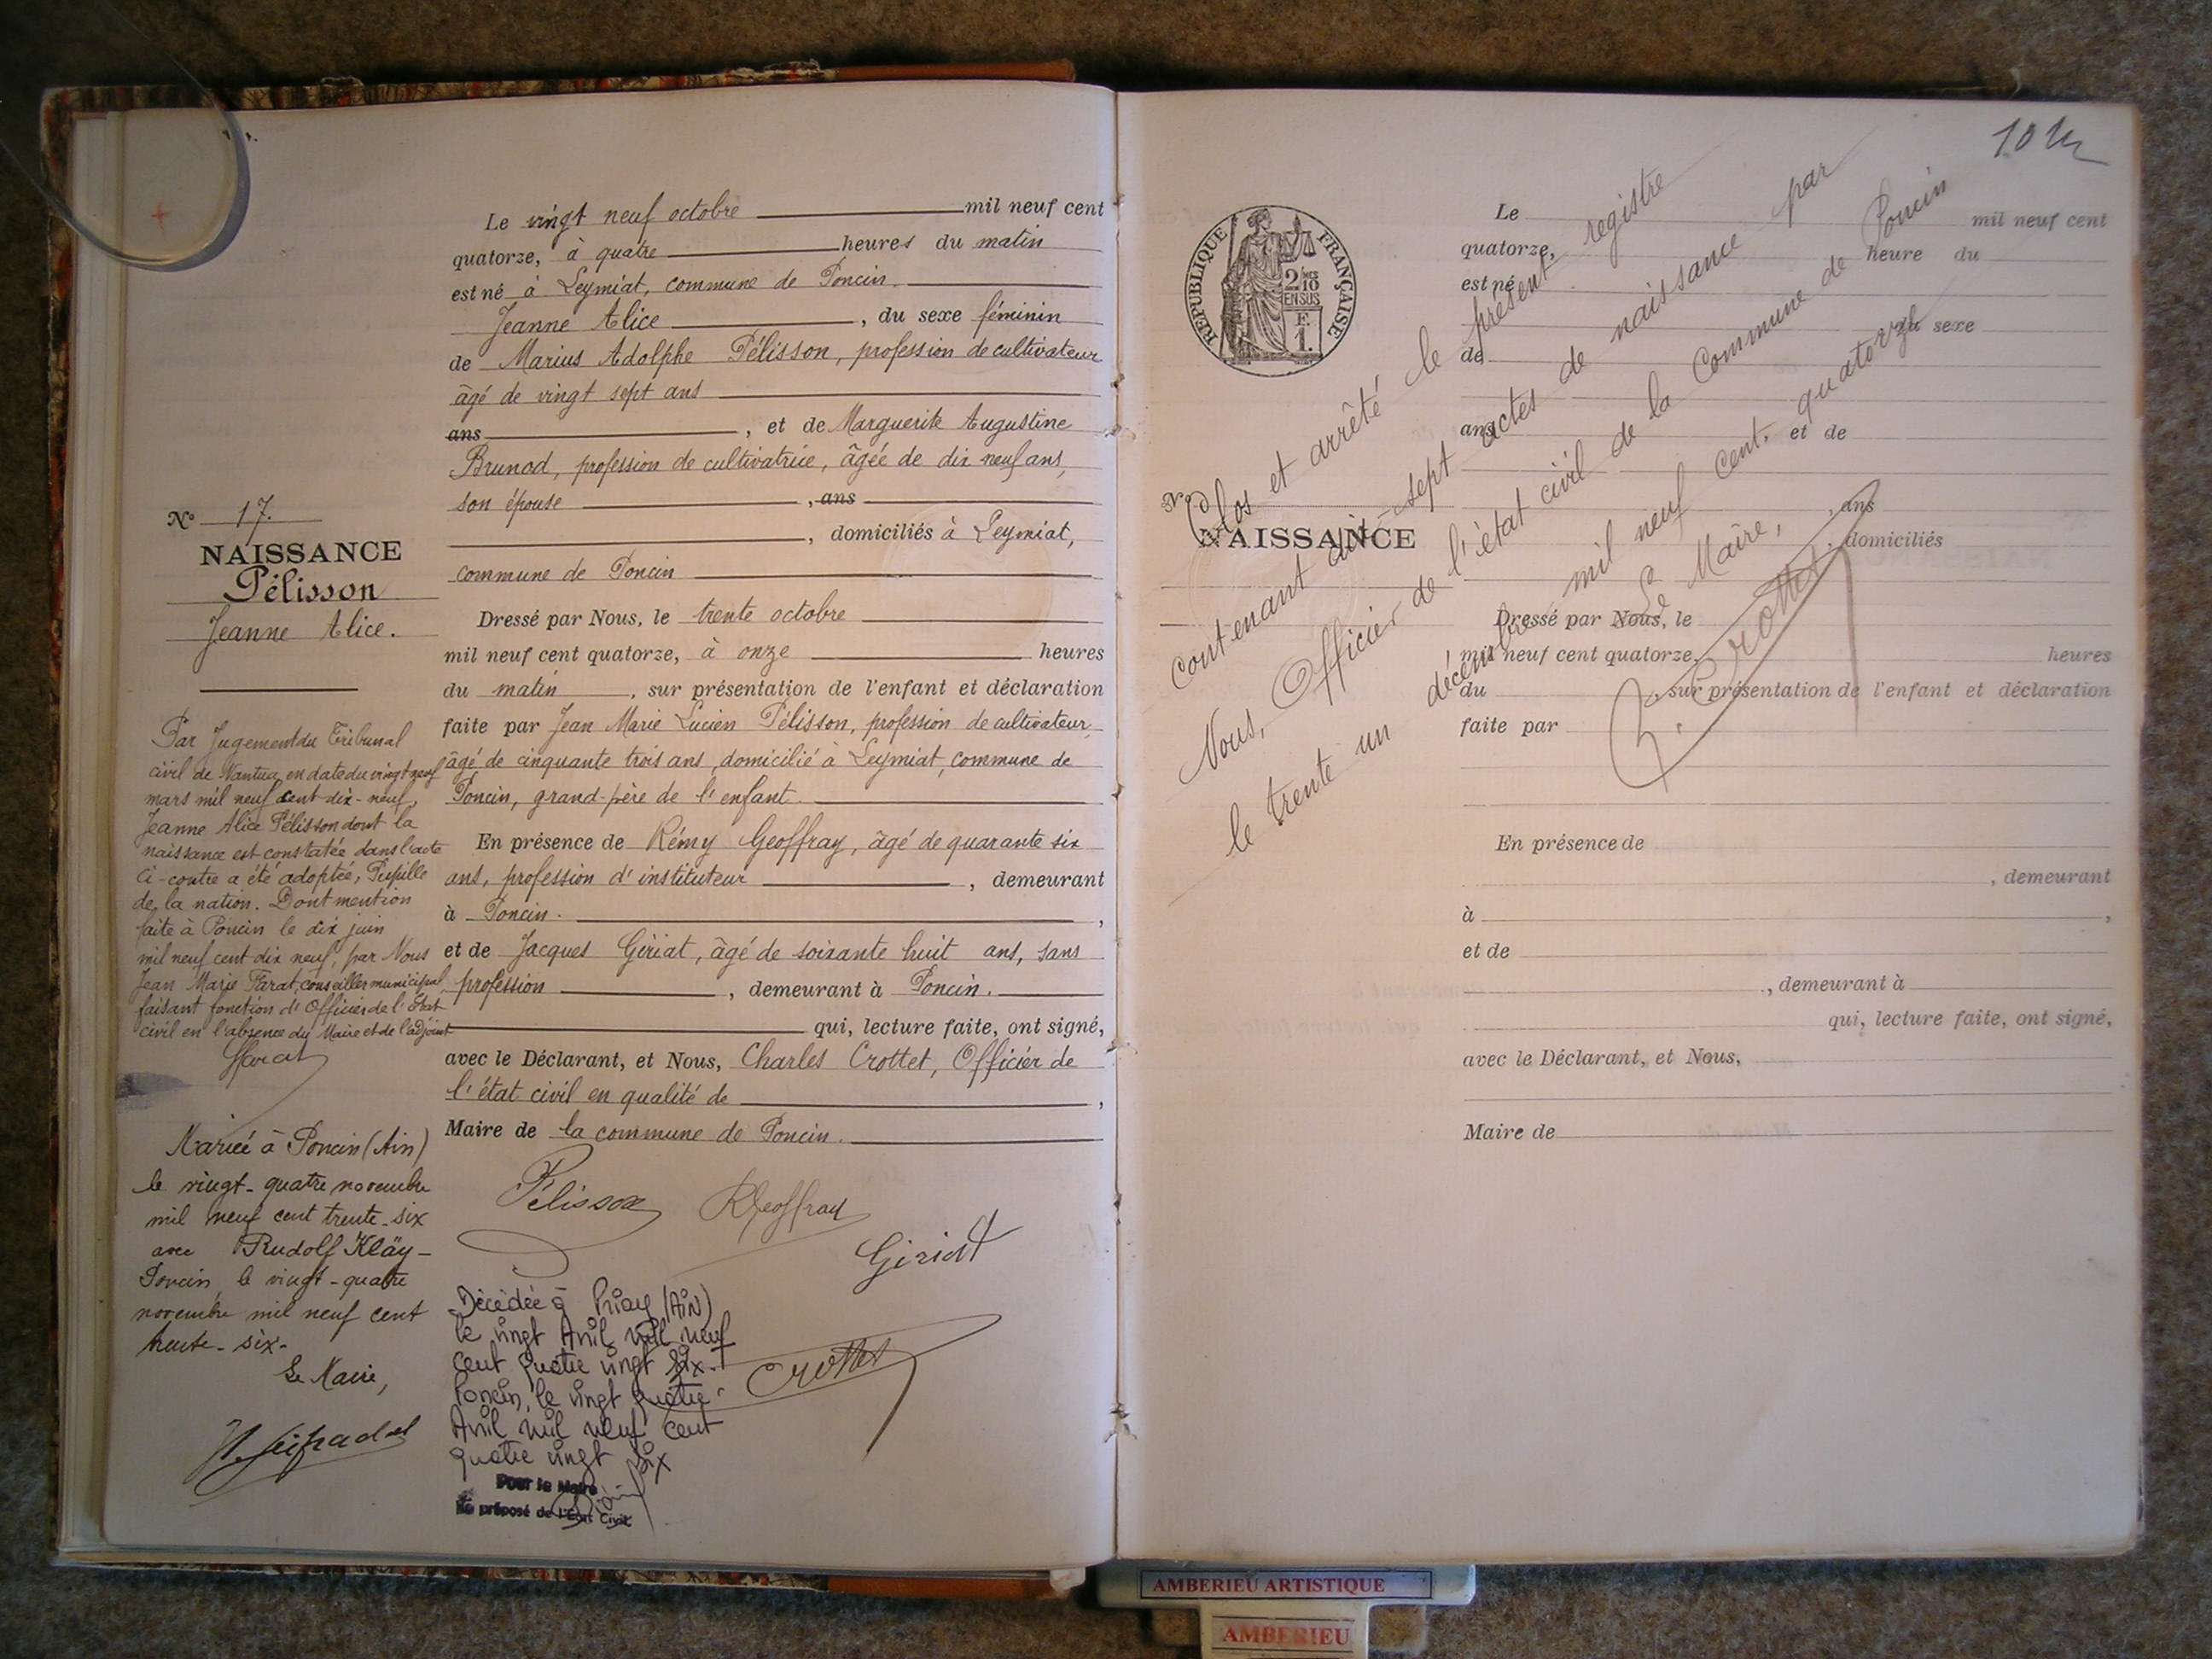 Le vingt neuf octobre mil neuf cent
quatorze, à quatre heures du matin
est né à Leymiat, commune de Poncin.
Jeanne Alice, du sexe féminin
de Marius Adolphe Pélisson, profession de cultivateur
âgé de vingt sept ans
ans, et de Marguerite Augustine
Brunod, profession de cultivatrice, âgée de dix neuf ans,
son épouse, ans
, domiciliés à Leymiat,
commune de Poncin
Dressé par Nous, le trente octobre
mil neuf cent quatorze, à onze heures
du matin, sur présentation de l'enfant et déclaration
faite par Jean Marie Lucien Pélisson, profession de cultivateur
âgé de cinquante trois ans, domicilié à Leymiat, commune de
Poncin, grand-père de l'enfant.
En présence de Rémy Geoffray, âgé de quarante six
ans, profession d'instituteur, demeurant
à Poncin.,
et de Jacques Giriat, âgé de soixante huit ans, sans
profession, demeurant à Poncin.
qui, lecture faite, ont signé,
avec le Déclarant, et Nous, Charles Crottet, Officier de
l'état civil en qualité de,
Maire de la commune de Poncin.
Pélisson RGeoffray
Giriat
Crottet
Décédée à Priay (AIN)
le vingt Avril mil neuf
cent quatre vingt six.
Poncin, le vingt quatre
Avril mil neuf cent
quatre vingt six
Pour le Maire
préposé de l'Etat Civil
N° 17.
NAISSANCE
Pélisson
Jeanne Alice.
Par Jugement du Tribunal
civil de Nantua en date du vingt neuf
mars mil neuf cent dix-neuf,
Jeanne Alice Pélisson dont la
naissance est constatée dans l'acte
ci-contre a été adoptée, Pupille
de la nation. Dont mention
faite à Poncin le dix juin
mil neuf cent dix neuf, par Nous
Jean Marie Farat, conseiller municipal
faisant fonction d'Officier de l'Etat
civil en l'absence du Maire et de l'adjoint
Farat
Mariée à Poncin (Ain)
le vingt-quatre novembre
mil neuf cent trente-six
avec Rudolf Kläy-
Poncin, le vingt-quatre
novembre mil neuf cent
trente-six-
Le Maire,
10
REPUBLIQUE FRANÇAISE
2/10
EN SUS
F.
1.
Le mil neuf cent
quatorze, heure du
est né
du sexe
de
ans, et de
, ans
, domiciliés
N°
NAISSANCE
Dressé par Nous, le
mil neuf cent quatorze, heures
du, sur présentation de l'enfant et déclaration
faite par
En présence de
, demeurant
à,
et de
, demeurant à
qui, lecture faite, ont signé,
avec le Déclarant, et Nous,
Maire de
Clos et arrêté le présent registre
contenant dix-sept actes de naissance par
Nous, Officier de l'état civil de la Commune de Poncin
le trente un décembre mil neuf cent, quatorze
Le Maire,
Crottet
AMBERIEU ARTISTIQUE
AMBERIEU